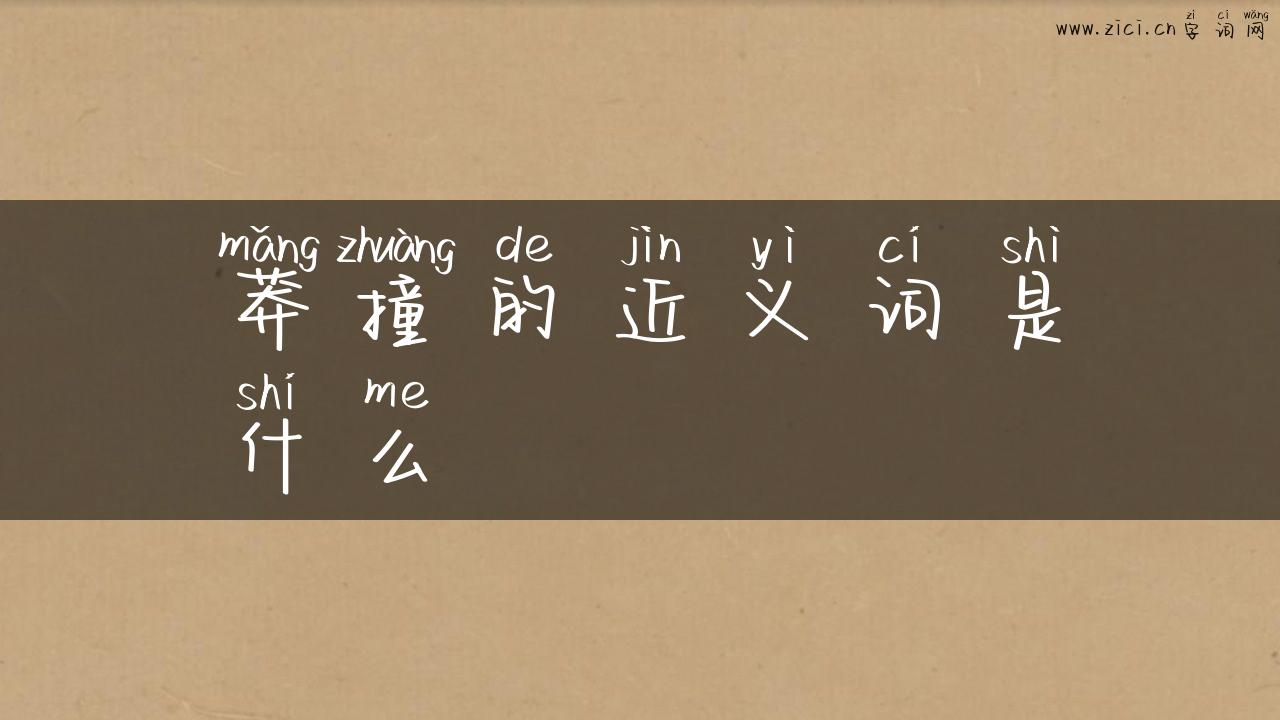 zì cí wǎng
www.zici.cn 字词网
mǎng zhuàng de jìn yì cí shì
莽撞的近义词是
shí me
什么